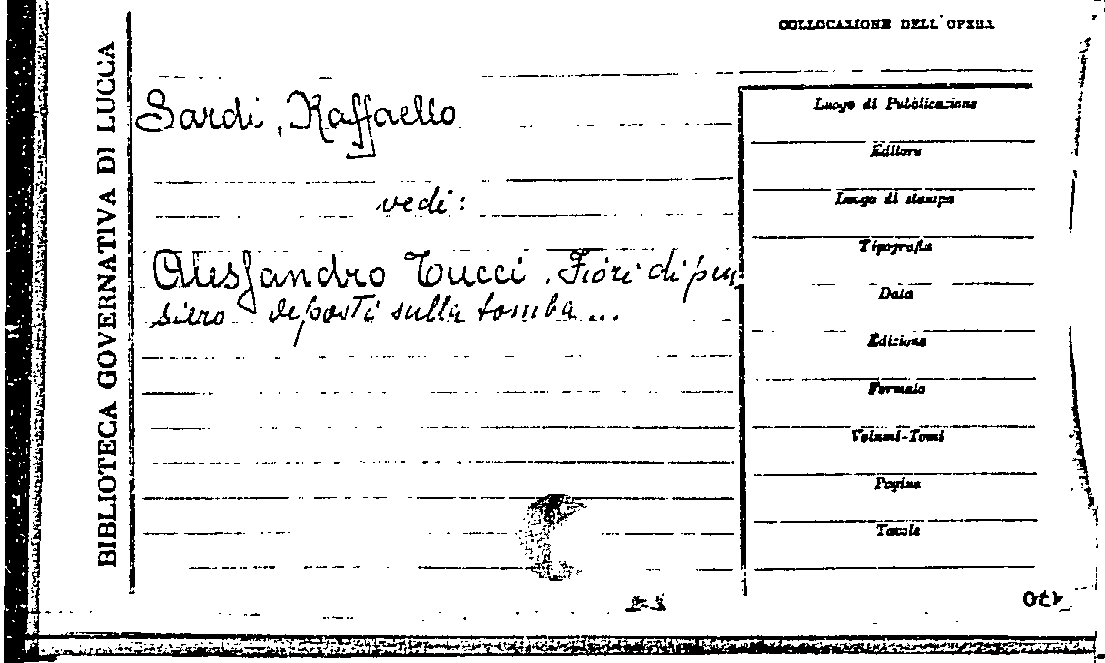 COLLOCAZIONE DELL'OPERA
BIBLIOTECA GOVERNATIVA DI LUCCA
Sardi, Raffaello
vedi:
Alessandro Tucci. Fiori di pen
siero deposti sulla tomba...
Luogo di Pubblicazione
Editore
Luogo di stampa
Tipografia
Data
Edizione
Formato
Volumi-Tomi
Pagine
Tavole